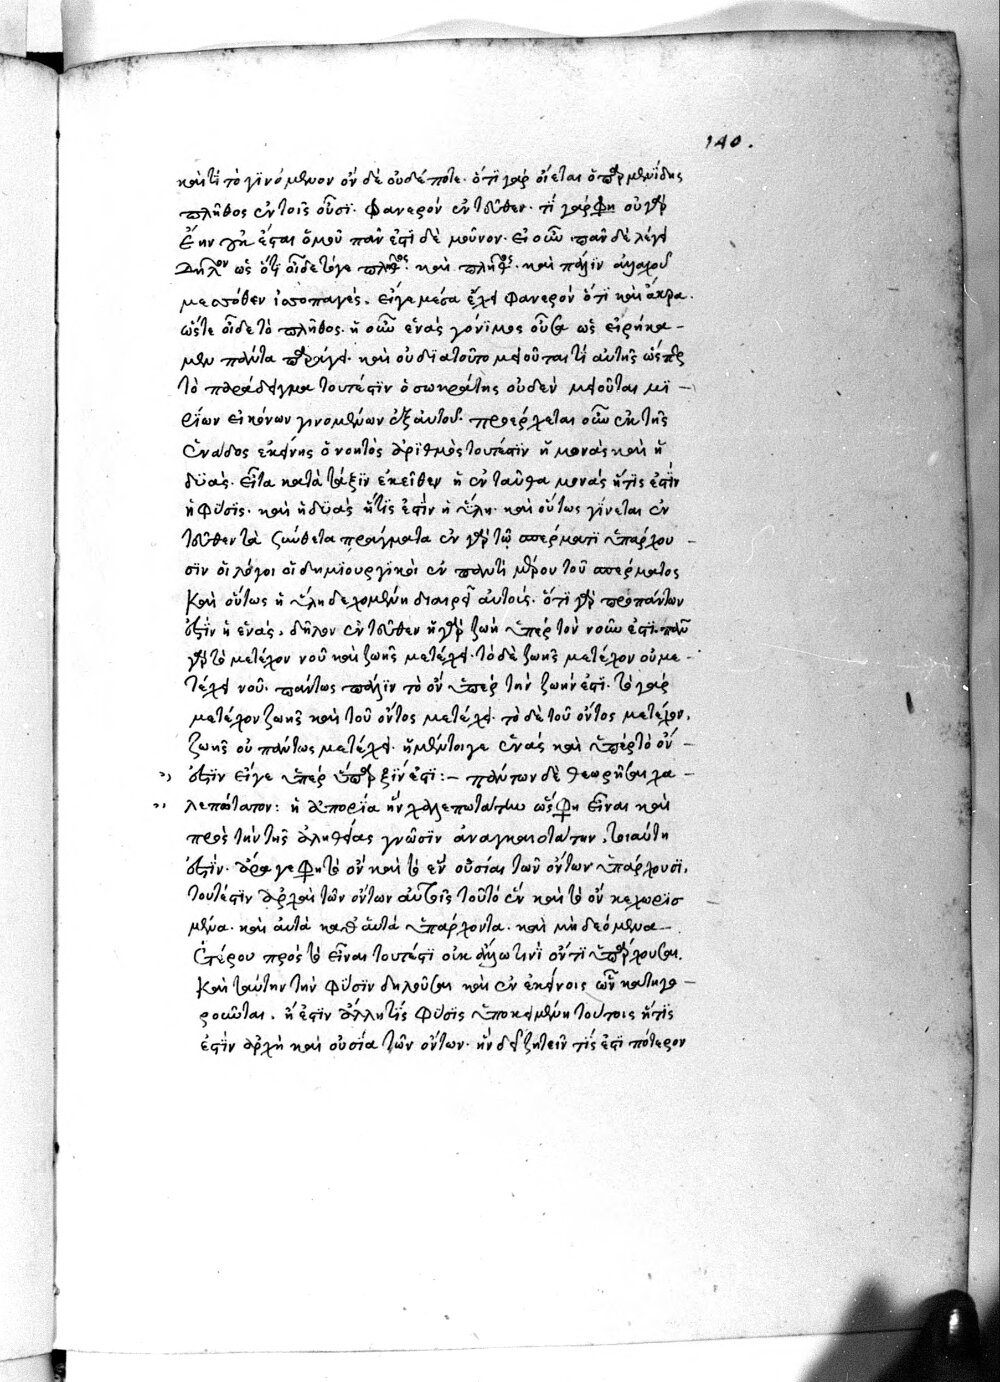 140.
καὶ τί τὸ γινόμενον ὂν δὲ οὐδέποτε· ὅτι γὰρ οἴεται ὁ παρμενίδης
πλῆθος ἐν τοῖς οὖσι· φανερὸν ἐντεῦθεν· τί γάρ φη οὐ γὰρ
ἔην ἔσται ὁμοῦ πᾶν ἔστι δὲ μοῦνον· εἰ οὖν πᾶν δὲ λέγει
δῆλον ὡς ὅτι οἶδε τόγε πλῆθος· καὶ πλῆθος· καὶ πάλιν ἀλαχοῦ
μεσσόθεν ἰσοπαγές. εἴγε μέσα ἔχει φανερὸν ὅτι καὶ ἄκρα.
ὥστε οἶδε τὸ πλῆθος· ἡ οὖν ἑνὰς γόνιμος οὖσα ὡς εἰρήκα-
μεν πάντα παράγει· καὶ οὐ διατοῦτο μειοῦται τί αὐτῆς ὥσπερ
τὸ παράδειγμα τουτέστιν ὁ σωκράτης οὐδὲν μειοῦται μυ-
ρίων εἰκόνων γινομένων ἐξ αὐτοῦ· προέρχεται οὖν ἐκ τῆς
ἑνάδος ἐκείνης ὁ νοητὸς ἀριθμὸς τουτέστιν ἡ μονὰς καὶ ἡ
δυάς· εἶτα κατὰ τάξιν ἐκεῖθεν ἡ ἐνταῦθα μονὰς ἥτις ἐστὶν
ἡ φύσις· καὶ ἡ δυὰς ἥτις ἐστὶν ἡ ὕλη· καὶ οὕτως γίνεται ἐν
τεῦθεν τὰ σύνθετα πράγματα ἐν γὰρ τῷ σπέρματι ὑπάρχου-
σιν οἱ λόγοι οἱ δημιουργικοὶ ἐν παντὶ μέρου τοῦ σπέρματος
καὶ οὕτως ἡ ὕλη δεχομένη διαιρεῖ αὐτούς· ὅτι γὰρ πρὸ πάντων
ἐστὶν ἡ ἑνάς, δῆλον ἐντεῦθεν ἡ γὰρ ζωὴ ὑπὲρ τὸν νοῦν ἐστι· πᾶν
γὰρ τὸ μετέχον νοῦ καὶ ζωῆς μετέχει· τὸ δὲ ζωῆς μετέχον οὐ με-
τέχει νοῦ· πάντως πάλιν τὸ ὂν ὑπὲρ τὴν ζωήν ἐστι· τὸ γὰρ
μετέχον ζωῆς καὶ τοῦ ὄντος μετέχει· τὸ δὲ τοῦ ὄντος μετέχον,
ζωῆς οὐ πάντως μετέχει· ἡ μέντοιγε ἑνὰς καὶ ὑπὲρ τὸ ὄν-
ἐστιν εἴγε ὑπὲρ ὕπαρξίν ἐστι:– πάντων δὲ θεωρῆσαι χα-
λεπώτατον: ἡ ἀπορία ἣν χαλεπωτάτην ὥς φη εἶναι καὶ
πρὸς τὴν τῆς ἀληθείας γνῶσιν ἀναγκαιοτάτην, τοιαύτη
ἐστίν· ἆρά γέ φη τὸ ὂν καὶ τὸ ἓν οὐσίαι τῶν ὄντων ὑπάρχουσι,
τουτέστιν ἀρχαὶ τῶν ὄντων αὐτοῖς τοῦτο ἓν καὶ τὸ ὂν κεχωρισ
μένα· καὶ αὐτὰ καθ' αὑτὰ ὑπάρχοντα· καὶ μὴ δεόμενα–
ἑτέρου πρὸς τὸ εἶναι τουτέστι οὐκ ἄλλω τινὶ ὄντι ὑπάρχουσαι.
καὶ ταύτην τὴν φύσιν δηλοῦσαι καὶ ἐν ἐκείνοις ὧν κατηγο-
ροῦνται, ἤ ἐστιν ἄλλη τίς φύσις ὑποκειμένη τούτοις ἥτις
ἐστὶν ἀρχὴ καὶ οὐσία τῶν ὄντων· ἣν δεῖ ζητεῖν τίς ἐστι πότερον